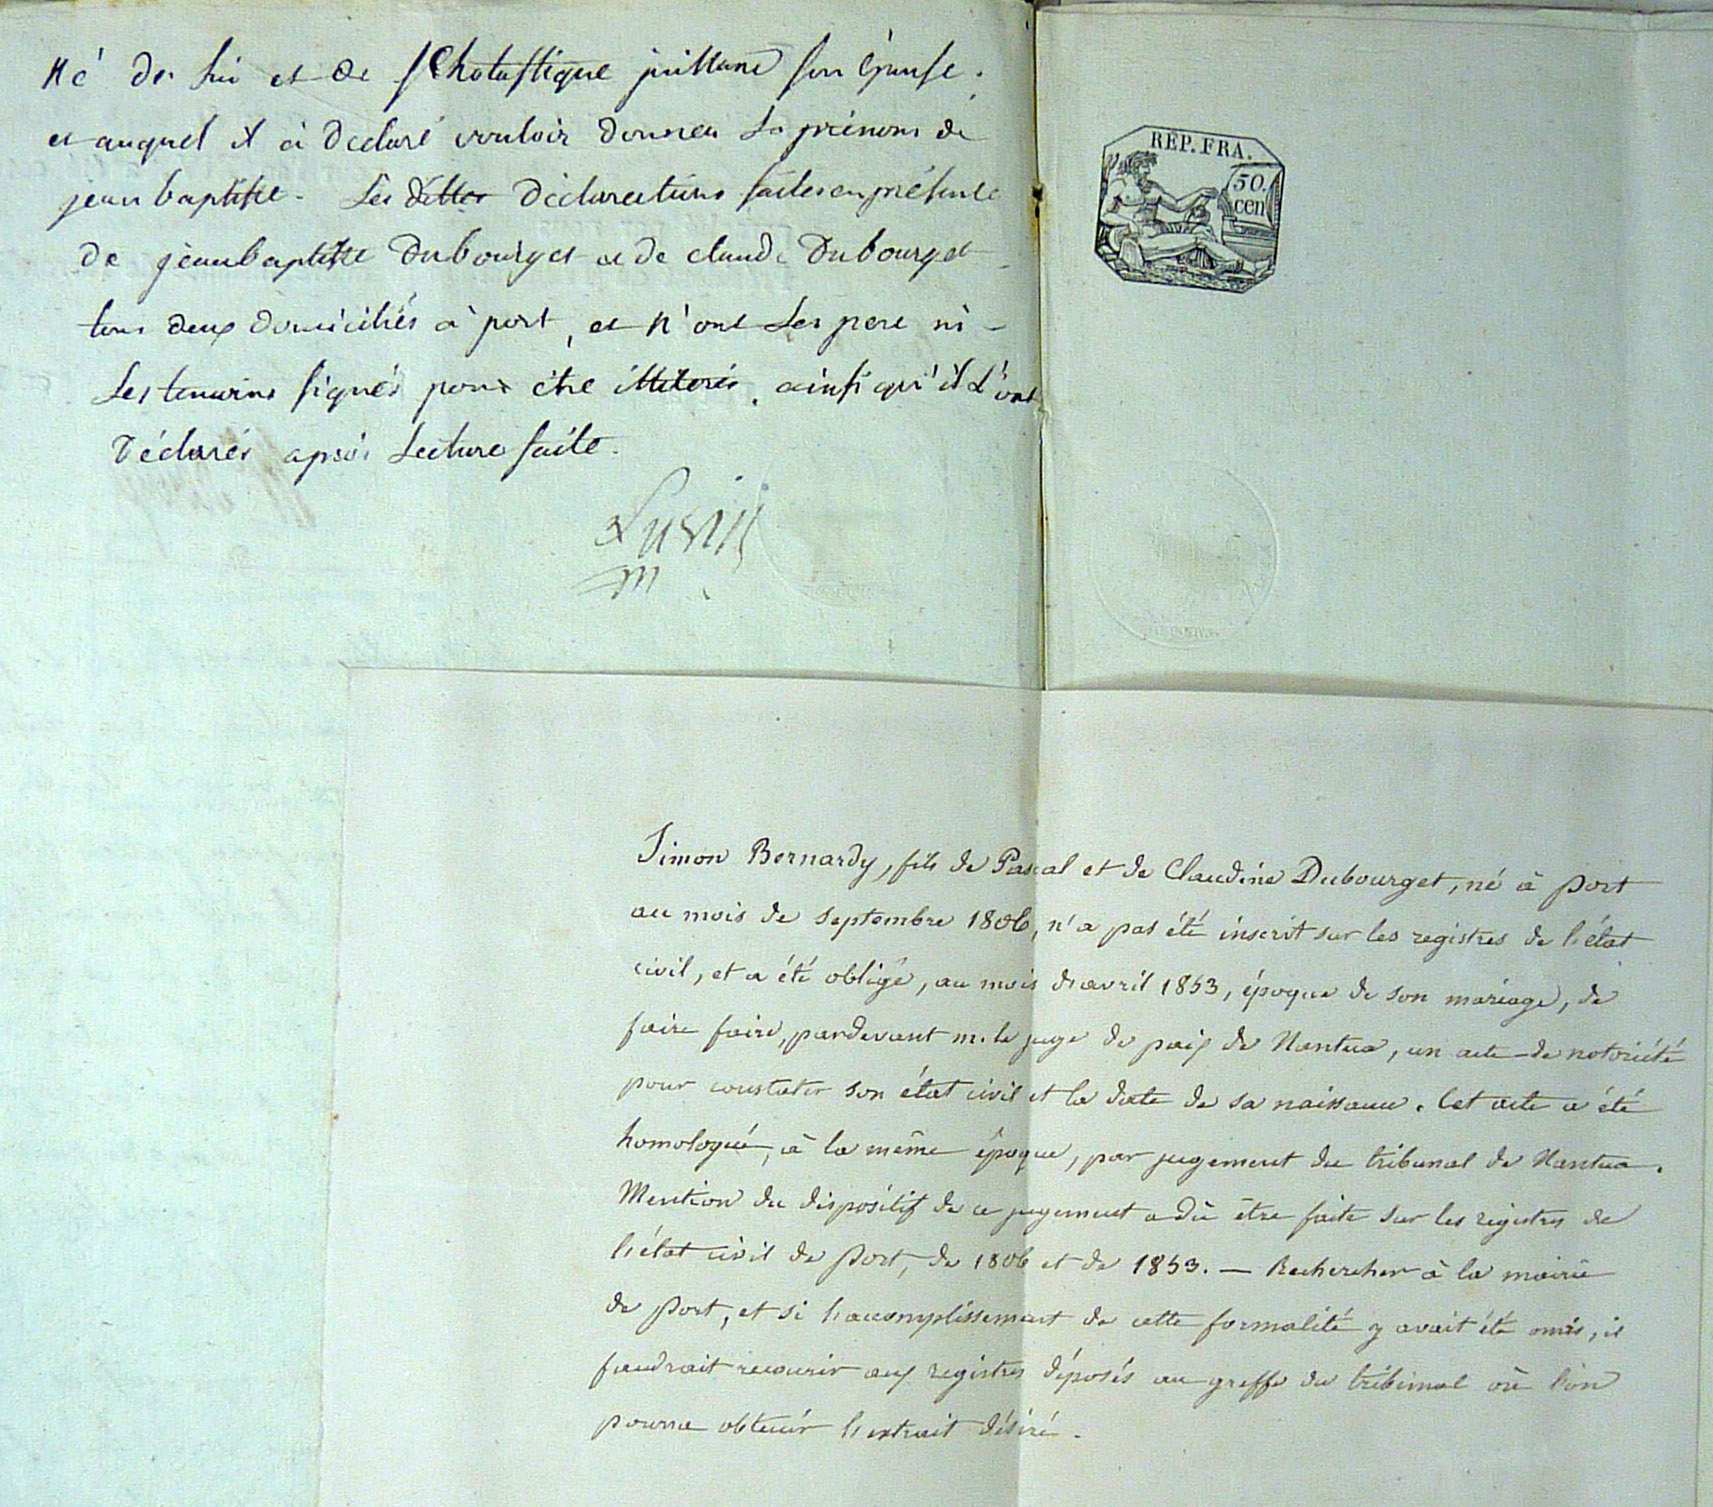 Né de lui et de Scholastique juillard son épouse.
et auquel il à déclaré vouloir donner le prénom de
jean baptiste. Les dittes déclarations faites en présence
de jean baptiste Dubourget et de claude Dubourget
tous deux domiciliés à port, et n'ont les pere ni
les temoins signés pour être illiterés. ainsi qu'il l'ont
déclarés après lecture faite.
REP. FRA.
50.
cen
Simon Bernardy, fils de Pascal et de Claudine Dubourget, né à Port
au mois de septembre 1806, n'a pas été inscrit sur les registres de l'état
civil, et a été obligé, au mois d'avril 1853, époque de son mariage, de
faire faire, pardevant m. le juge de paix de Nantua, un acte de notoriété
pour constater son état civil et la date de sa naissance. Cet acte a été
homologué, à la même époque, par jugement du tribunal de Nantua.
Mention du dispositif de ce jugement a dû être faite sur les registres de
l'état civil de Port, de 1806 et de 1853. — Rechercher à la mairie
de Port, et si l'accomplissement de cette formalité y avait été omis, il
faudrait recourir aux registres déposés au greffe du tribunal où l'on
pourra obtenir l'extrait désiré.